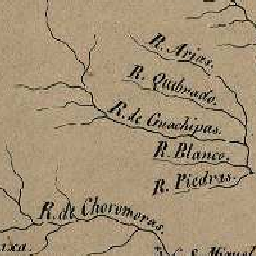 R. Arias.
R. Quebrado.
R. de Guachipas.
R. Blanco.
R. Piedras.
R. de Choromoros.
S. Miguel